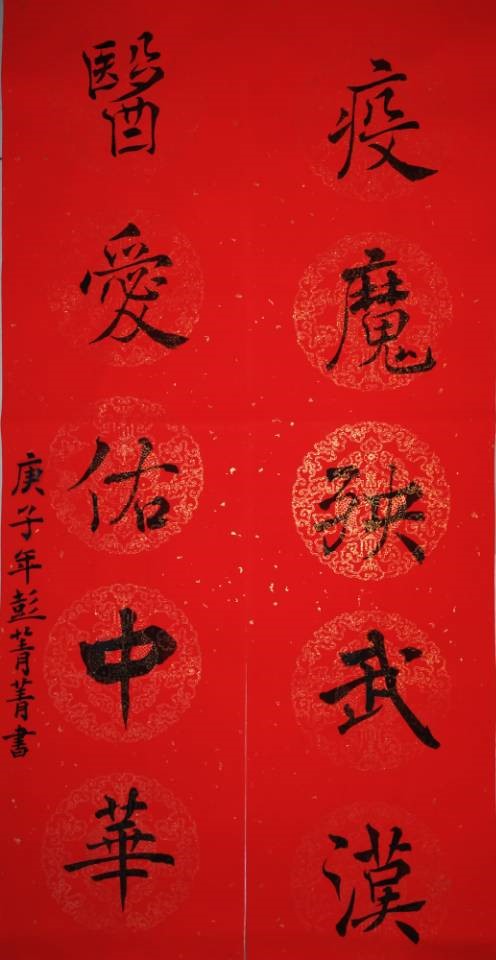 疫魔殃武漢
醫愛佑中華
庚子年彭菁菁書